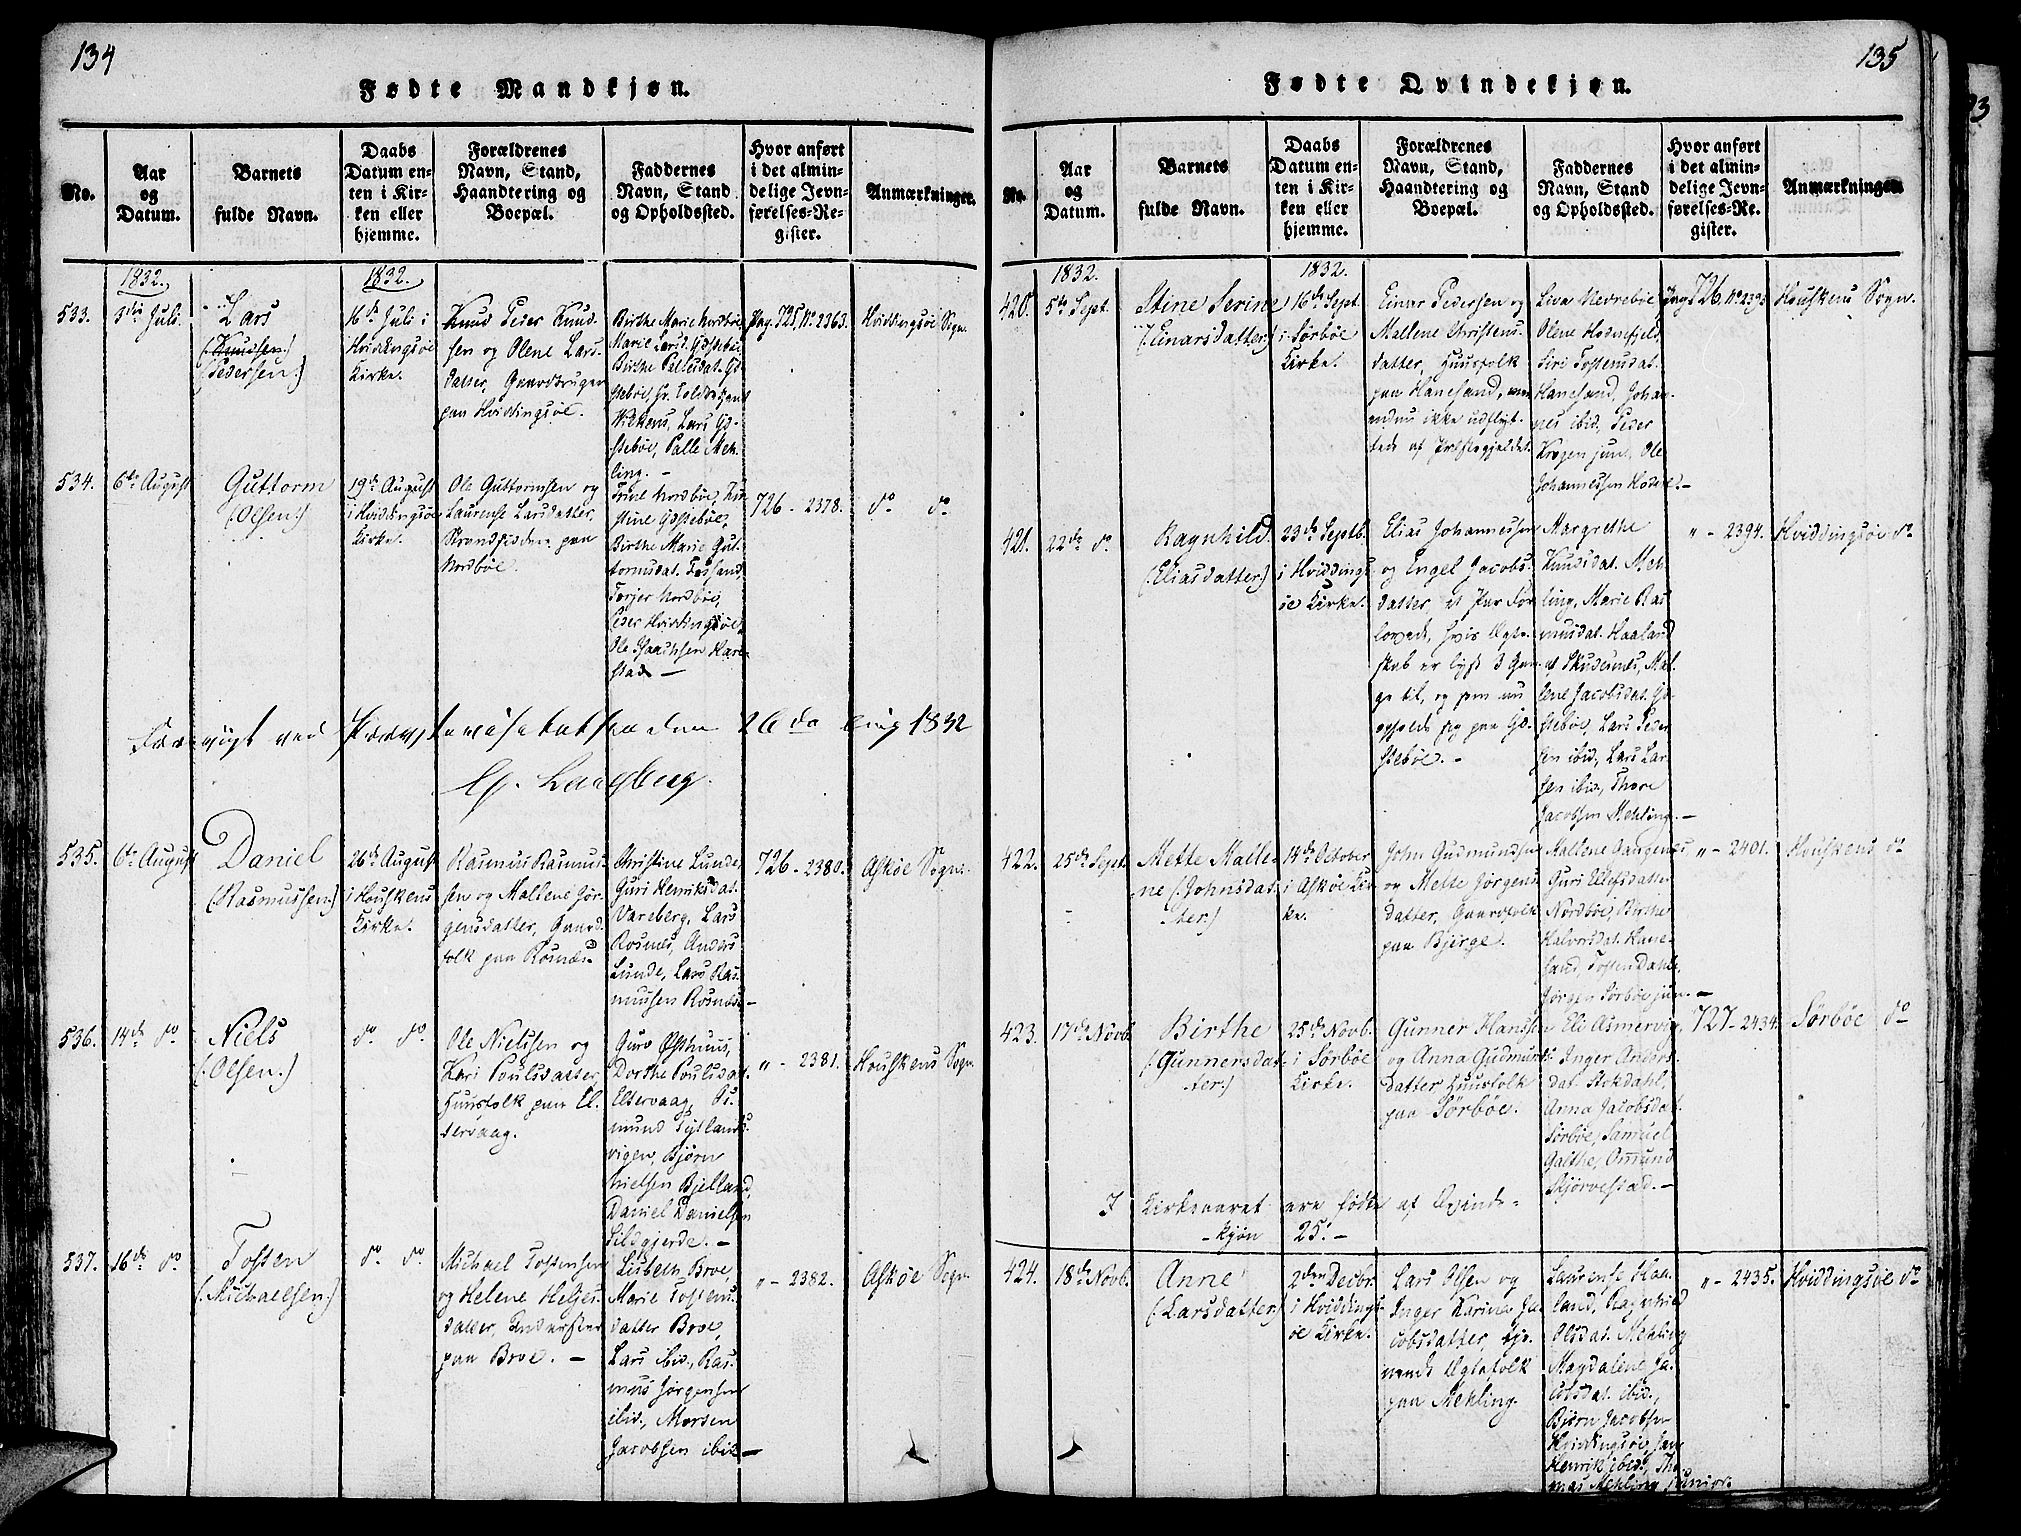 134
Fødte Mandkjøn.
No.
Aar
og
Datum.
Barnets
fulde Navn.
Daabs
Datum en-
ten i Kir-
ken eller
hjemme.
Forældrenes
Navn, Stand,
Haandtering og
Boepæl.
Faddernes
Navn, Stand
og Opholdssted.
Hvor anført
i det almin-
delige Jevn-
førelses-Re-
gister.
Anmærkninger.
1832.
1832.
533.
Juli.
Lars
(Knudsen.)
(Pedersen.)
16de Juli i
Hviddingsøe
Kirke.
Knud Peder Knud-
sen og Olene Lars-
datter, Gaardbruger
paa Hviddingsøe.
Birthe Marie Nordbøe,
Marie Larsd. Gjssebøe
Birthe Pallesdat.
Lars
Palle Meh-
ling. -
Pag. 725, No. 2363.
Hviddingsøe Sogn.
534.
6te August
Guttorm
(Olsen.)
19de August
i Hviddingsøe
Kirke.
Ole Guttormsen og
Laurense Larsdatter,
Strandsidder paa
Nordbøe.
Trine Nordbøe,
Birthe Marie Gut-
tormsdat.
Nordbøe,
Peder Hviddingsøe
Ole Isaachsen Hare-
stad -
726 - 2378.
do do
den 26de Aug 1832
535.
6te August
Daniel
(Rasmussen)
26de August
i Houskens
Kirke.
Rasmus Rasmus-
sen og Mallene Jør-
gensdatter, Gaard-
folk paa Rosnæs
Christine Lunde,
Guri Henriksdat.
Vareberg, Lars
Rosnæs, Anders
Lunde, Lars Ras-
mussen Rosnæs -
726 - 2380.
Askøe Sogn.
536.
14de do
Niels
(Olsen.)
do do
Ole Nielsen og
Kari Poulsdatter,
Huusfolk paa El-
tervaag.
Guro Østhuus,
Dorthe Poulsdat.
Eltervaag, As-
mund
vigen, Bjørn
Nielsen Bjelland,
Daniel Danielsen
Sildgjerde. -
" - 2381.
Houskens Sogn.
537.
16de do
Tosten
(Michaelsen.)
do do
Michael Tostensen
og Helene Helges-
datter,
paa Broe. -
Lisbeth Broe,
Marie Tostens-
datter Broe,
Lars ibid., Ras-
mus Jørgensen
ibid., Morten
Jacobsen ibid -
" - 2382.
Askøe Sogn.
135
Fødte Qvindekjøn.
No.
Aar
og
Datum.
Barnets
fulde Navn.
Daabs
Datum en-
ten i Kir-
ken eller
hjemme.
Forældrenes
Navn, Stand,
Haandtering og
Boepæl.
Faddernes
Navn, Stand
og Opholdssted.
Hvor anført
i det almin-
delige Jevn-
førelses-Re-
gister.
Anmærkninger.
1832.
1832.
420.
5te Sept.
Stine Serine
(Einarsdatter.)
16de Sept.
i Sørbøe
Kirke.
Einar Pedersen og
Mallene Christens-
datter, Huusfolk
paa Hanesand, men
endnu ikke udflyt-
tede af Præstegjeldet.
Siri Tostensdat.
Hanesand, Johan-
nes ibid, Peder
Krogen jun., Ole
Johannessen
Pag. 726, No. 2393
Houskens Sogn.
421.
22de do
Ragnhild
(Eliasdatter.)
23de Septb.
i Hviddings-
øe Kirke.
Elias Johannessen
og Engel Jacobs-
datter, et Par For-
lovede, hvis Ægte-
skab er lyst 3 Gan-
ge til, og som nu
opholde sig paa
Margrethe
Knudsdat. Meh-
ling, Marie Ras-
musdat. Haaland
af Skudesnæs, Mal-
lene Jacobsdat.
Lars Peder-
sen ibid, Lars Lar-
sen ibid., Thore
Jacobsen Mehling. -
" - 2394.
Hviddingsøe do
422.
25de Sept.
Mette Malle-
ne (Johnsdat-
ter.)
14de October
i Askøe Kir-
ke.
John Gudmundsen
og Mette Jørgens-
datter, Gaardfolk
paa Bjerge.
Mallene Gangenes
Guri Ellefsdatter
Nordbøe, Birthe
Halvorsdat. Hane-
sand, Tosten Dahle,
Jørgen Sørbøe jun. -
" - 2401.
Houskens do
423.
17de Novb.
Birthe
(Gunnersdat-
ter.)
25de Novb.
i Sørbøe
Kirke.
Gunner Hansen
og Anna Gudmunds-
datter Huusfolk
paa Sørbøe.
Eli Asmervig,
Inger Anders-
dat. Stokdahl,
Anna Jacobsdat.
Sørbøe, Samuel
Galthe, Omund
Skjørvestad. -
727 - 2434.
Sørbøe do
I Kirkeaaret ere fødte af Qvinde-
-kjøn 25. -
424.
18de Novb.
Anne
(Larsdatter)
2den Decbr.
i Hviddings-
øe Kirke.
Lars Olsen og
Inger Karine Ja-
cobsdatter, tje-
nende Ægtefolk
paa Mehling.
Laurense Haa-
land, Ragnhild
Olsdat. Mehling
Magdalene Ja-
cobsdat. ibid.,
Bjørn Jacobsen
Hviddingsøe, Jan
Henrik ibid., Tho-
mas Mehling junior.
" - 2435.
Hviddingsøe do